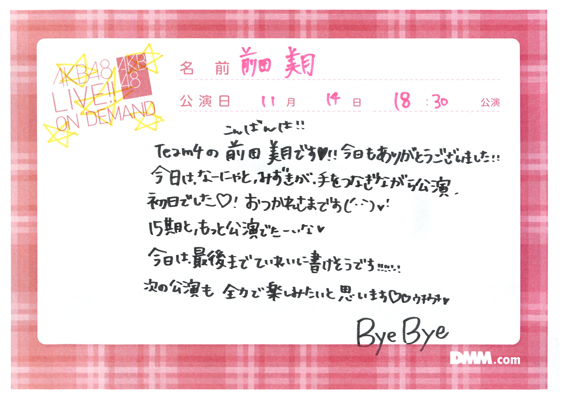 AKB48
LIVE!!
ON DEMAND
AKB
48
名 前 前田 美月
公演日 11月 14日 18:30 公演
こんばんは!!
Team4の 前田 美月です♥!! 今日もありがとうございました!!
今日は、なーにゃと、みずきが、手をつなぎながら公演
初日でした♡! おつかれさまです
15期と、もっと公演でたーいな♥
今日は、最後までていねいに書けそうです!!!!
次の公演も 全力で楽しみたいと思います♡
ByeBye
DMM.com